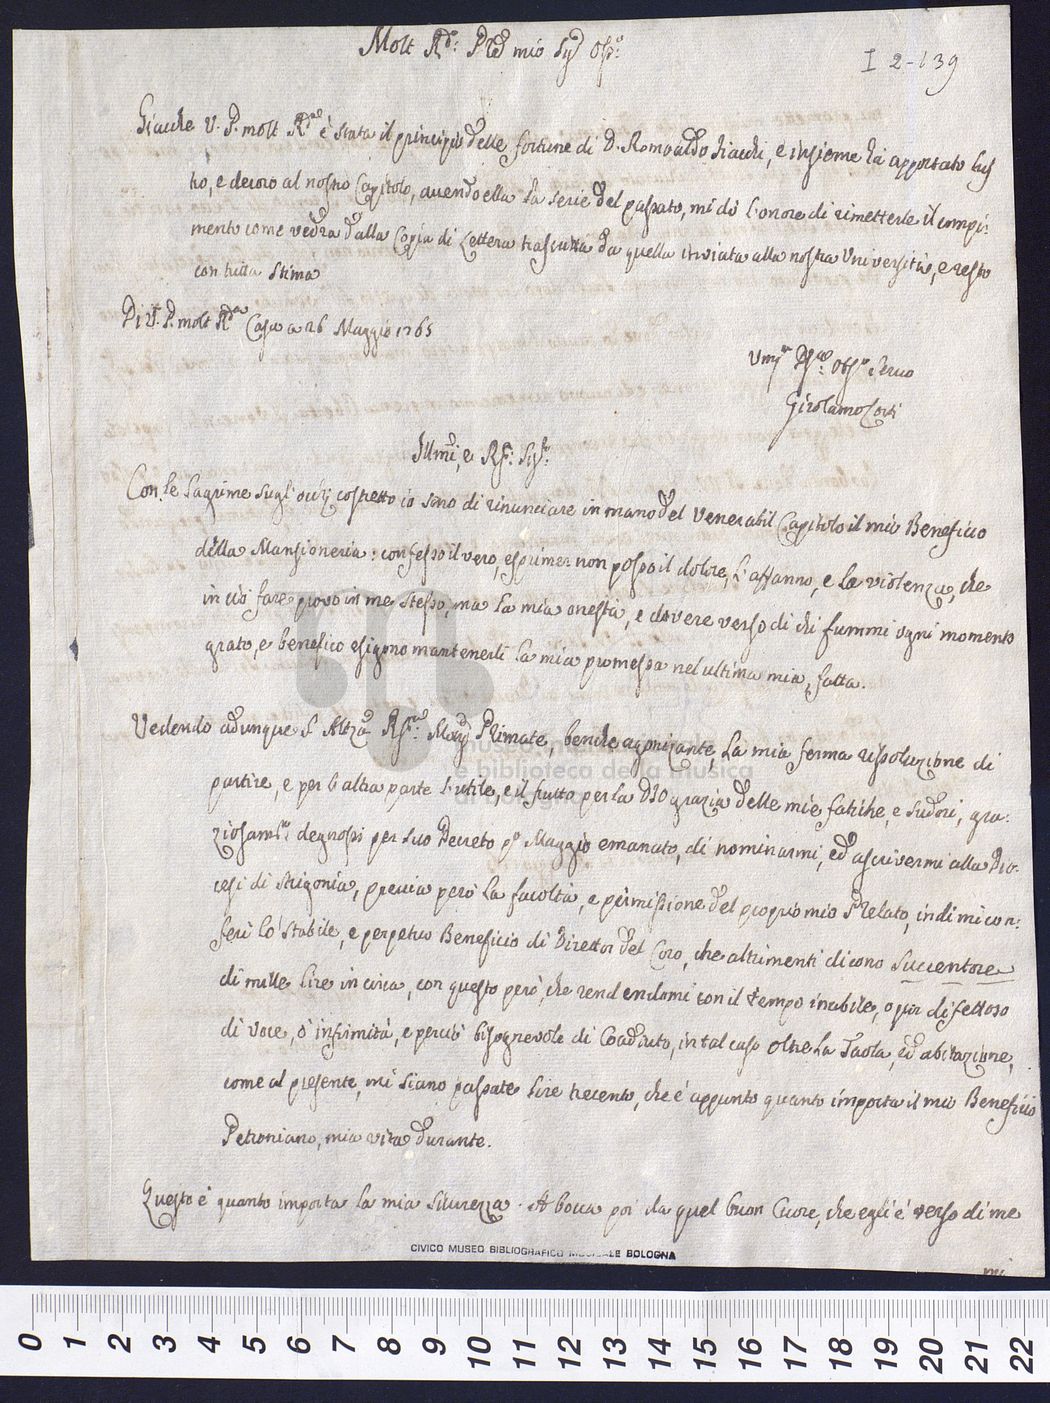 Molt Rdo: Pre mio Sig Oss:o
I 2-139
Giache V. P. molt Rda è stata il principio delle fortune di D. Romoaldo Siachi, e insieme ha apportato lus
tro, e decoro al nostro Capitolo, avendo ella la serie del passato, mi dò l'onore di rimetterle il compi:
mento come vedrà dalla Copia di Lettera trascritta da quella inviata alla nostra Università, e resto
con tutta stima
Di V. P. molt Rda Casa a 26 Maggio 1765
Girolamo Conti
Illmi, e Rsi: Sigri
Con le lagrime sugl'occhj costretto io sono di rinunciare in mano del Venerabil Capitolo il mio Beneficio
della Mansioneria: confesso il vero, esprimer non posso il dolore, l'affanno, e la violenza, che
in ciò fare provo in me stesso, ma la mia onestà, e dovere verso di chi fummi ogni momento
grato, e benefico esigono mantenerli la mia promessa nel ultima mia, fatta.
Vedendo adunque S Altza Rsma Monsig Primate, benche agonizante, la mia ferma risoluzione di
partire, e per l'altra parte l'utile, e il frutto per la DIO grazia delle mie fatiche, e sudori, gra:
ziosamte degnossi per suo Decreto po Maggio emanato, di nominarmi, ed ascrivermi alla Dio:
cesi di Strigonia, previa però la facoltà, e permissione del proprio mio Prelato, indi mi con:
ferì lo stabile, e perpetuo Beneficio di Direttor del Coro, che altrimenti dicono Succentore
di mille lire in circa, con questo però, che rendendomi con il tempo inabile, o per difettoso
di voce, ò infirmità, e perciò bisognevole di Coadiuto, in tal caso oltre la Taola, ed abitazione,
come al presente, mi siano passate lire trecento, che è appunto quanto importa il mio Beneficio
Petroniano, mia vita durante.
Questo è quanto importa la mia sicurezza. A bocca poi da quel buon Cuore, che egli è verso di me
mi
museo internazionale
e biblioteca della musica
di bologna
CIVICO MUSEO BIBLIOGRAFICO MUSICALE BOLOGNA
0 1 2 3 4 5 6 7 8 9 10 11 12 13 14 15 16 17 18 19 20 21 22